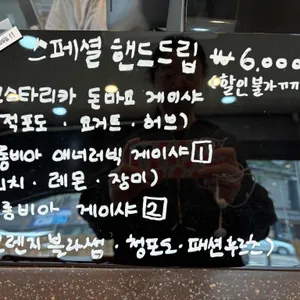 스페셜 핸드드립 ₩6,000
스타리카 돈마요 게이샤 (할인불가ㄲㄲ
적포도 · 요거트 · 허브)
롬비아 애너러빅 게이샤 1
치 · 레몬 · 장미)
롬비아 게이샤 2
렌지블라썸 · 청포도 · 패션후르츠)